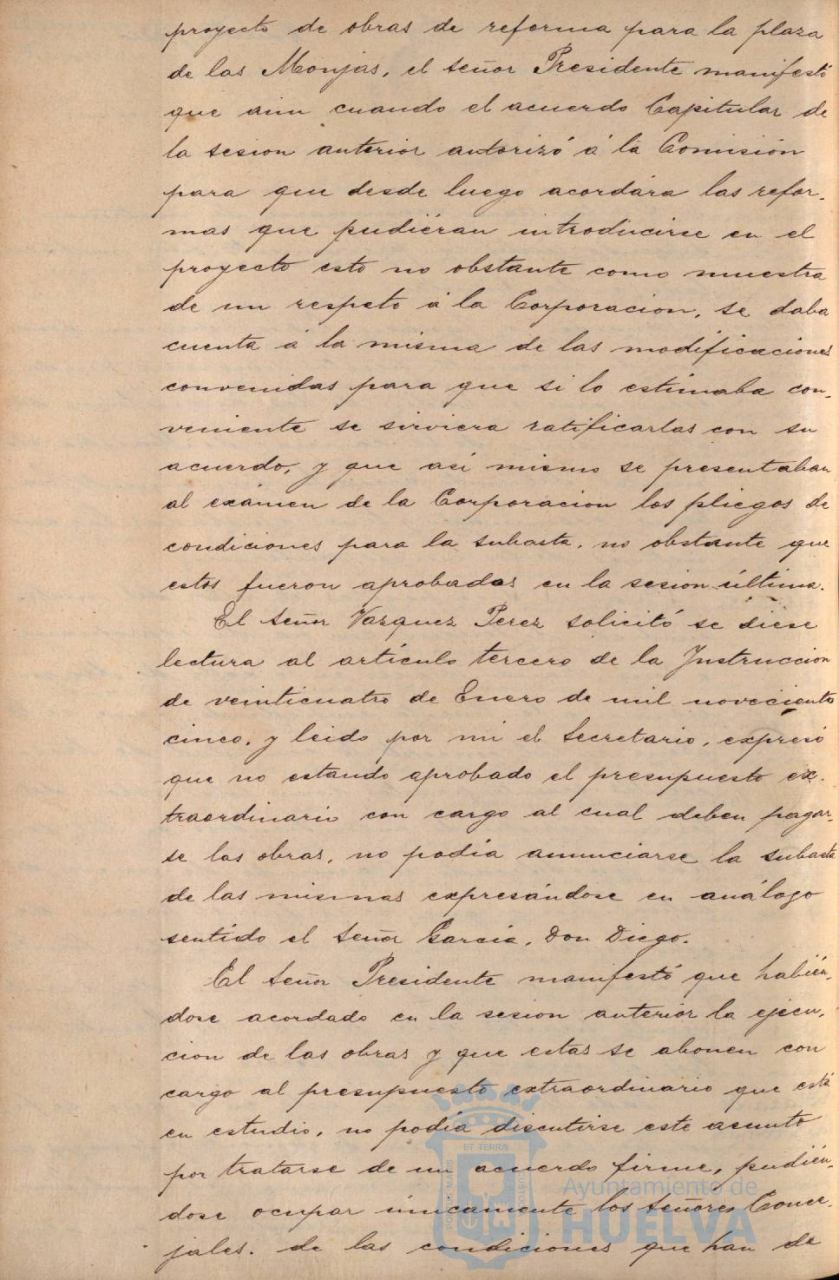 proyecto de obras de reforma para la plaza
de las Monjas, el señor Presidente manifestó
que aun cuando el acuerdo Capitular de
la sesion anterior autorizó á la Comisión
para que desde luego acordára las refor-
mas que pudiéran introducirse en el
proyecto esto no obstante como muestra
de un respeto á la Corporacion, se daba
cuenta á la misma de las modificaciones
convenidas para que si lo estimaba con-
veniente se sirviera ratificarlas con su
acuerdo, y que asi mismo se presentaban
al exámen de la Corporacion los pliegos de
condiciones para la subasta, no obstante que
estos fueron aprobados en la sesion última.
El señor Vazquez Perez solicitó se diese
lectura al artículo tercero de la Instruccion
de veinticuatro de Enero de mil novecientos
cinco, y leido por mi el Secretario, expresó
que no estando aprobado el presupuesto ex-
traordinario con cargo al cual deben pagar-
se las obras, no podía anunciarse la subasta
de las mismas expresándose en análogo
sentido el señor García, Don Diego.
El señor Presidente manifestó que habién-
dose acordado en la sesion anterior la ejecu-
cion de las obras y que estas se abonen con
cargo al presupuesto extraordinario que está
en estudio, no podía discutirse este asunto
por tratarse de un acuerdo firme, pudién-
dose ocupar únicamente los señores Conce-
jales, de las condiciones que han de
ET TERRÆ
Ayuntamiento de
HUELVA